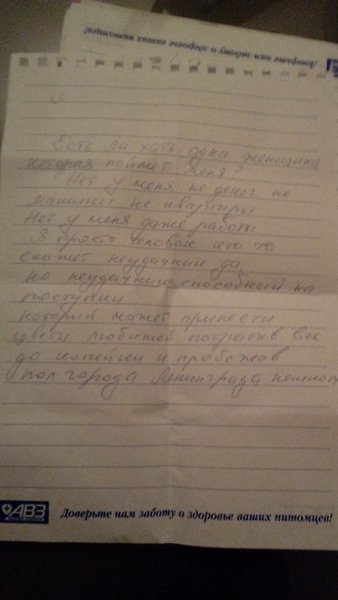 Доверьте нам заботу о здоровье ваших питомцев!
Есть ли хоть одна женщина
которая поймет меня?
Нет у меня не денег не
машины не квартиры
Нет у меня даже работы
Я просто человек кто то
скажет неудачник да
но неудачник способный на
поступки
который может принести
цветы любимой потратив все
до копейки и пробежав
пол города Ленинграда пешком
АВЗ Доверьте нам заботу о здоровье ваших питомцев!